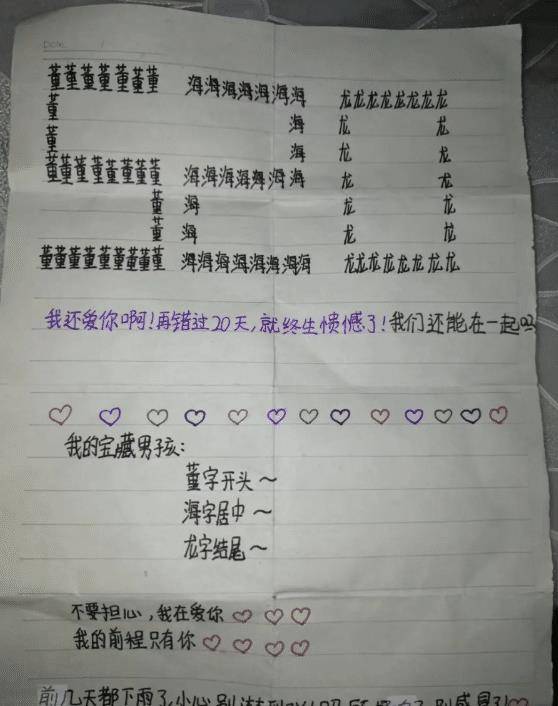 董董董董董董董 海海海海海海海 龙龙龙龙龙龙龙龙
董 海 龙 龙
董 海 龙 龙
董董董董董董董董 海海海海海海海 龙 龙
董 海 龙 龙
董 海 龙 龙
董董董董董董董董董 海海海海海海海海 龙龙龙龙龙龙龙龙
我还爱你啊!再错过20天,就终生愦憾了!我们还能在一起吗
我的宝藏男孩:
董字开头~
海字居中~
龙字结尾~
不要担心,我在爱你
我的前程只有你
前几天都下雨了,小心别